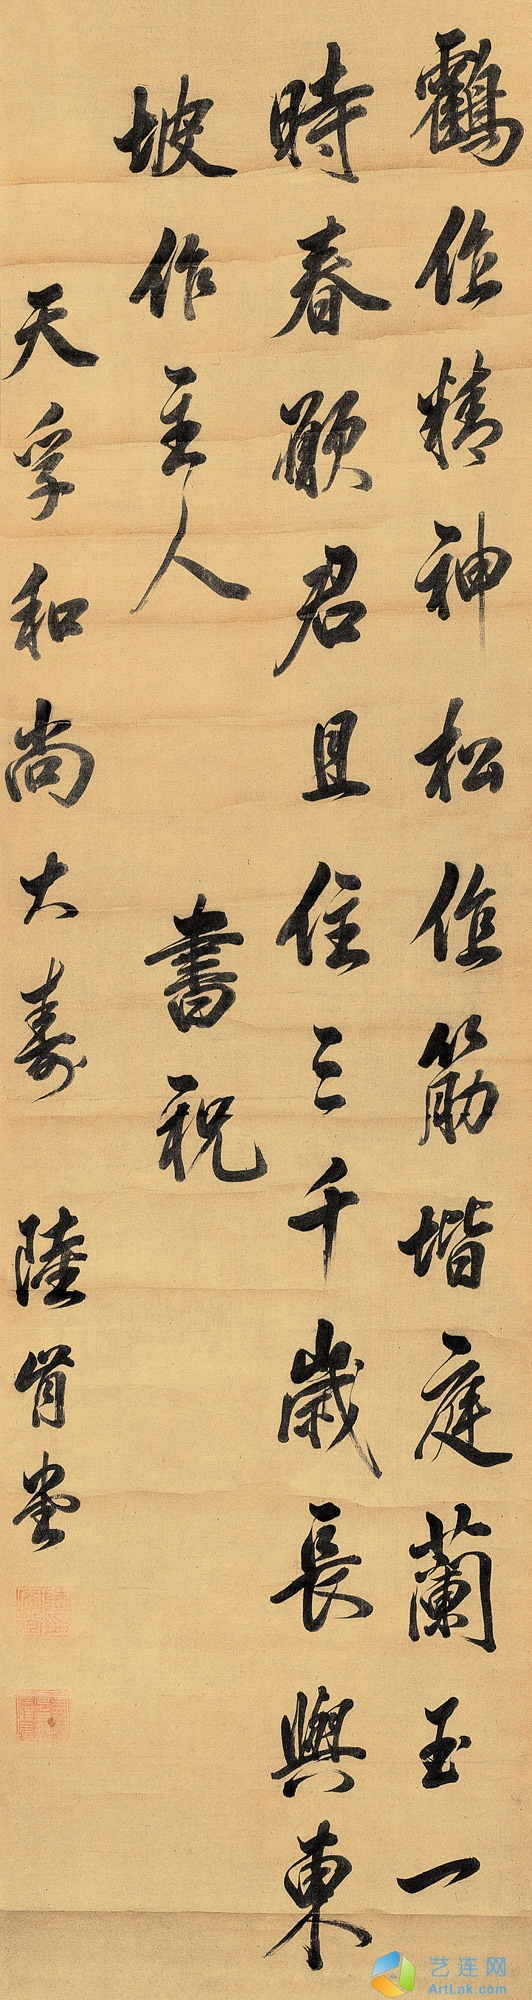 鶴作精神松作筋堦庭蘭玉一
時春願君且住三千歲長與東
坡作主人
書祝
天孚和尚大壽
陸肯堂
艺连网
ArtLnk.com